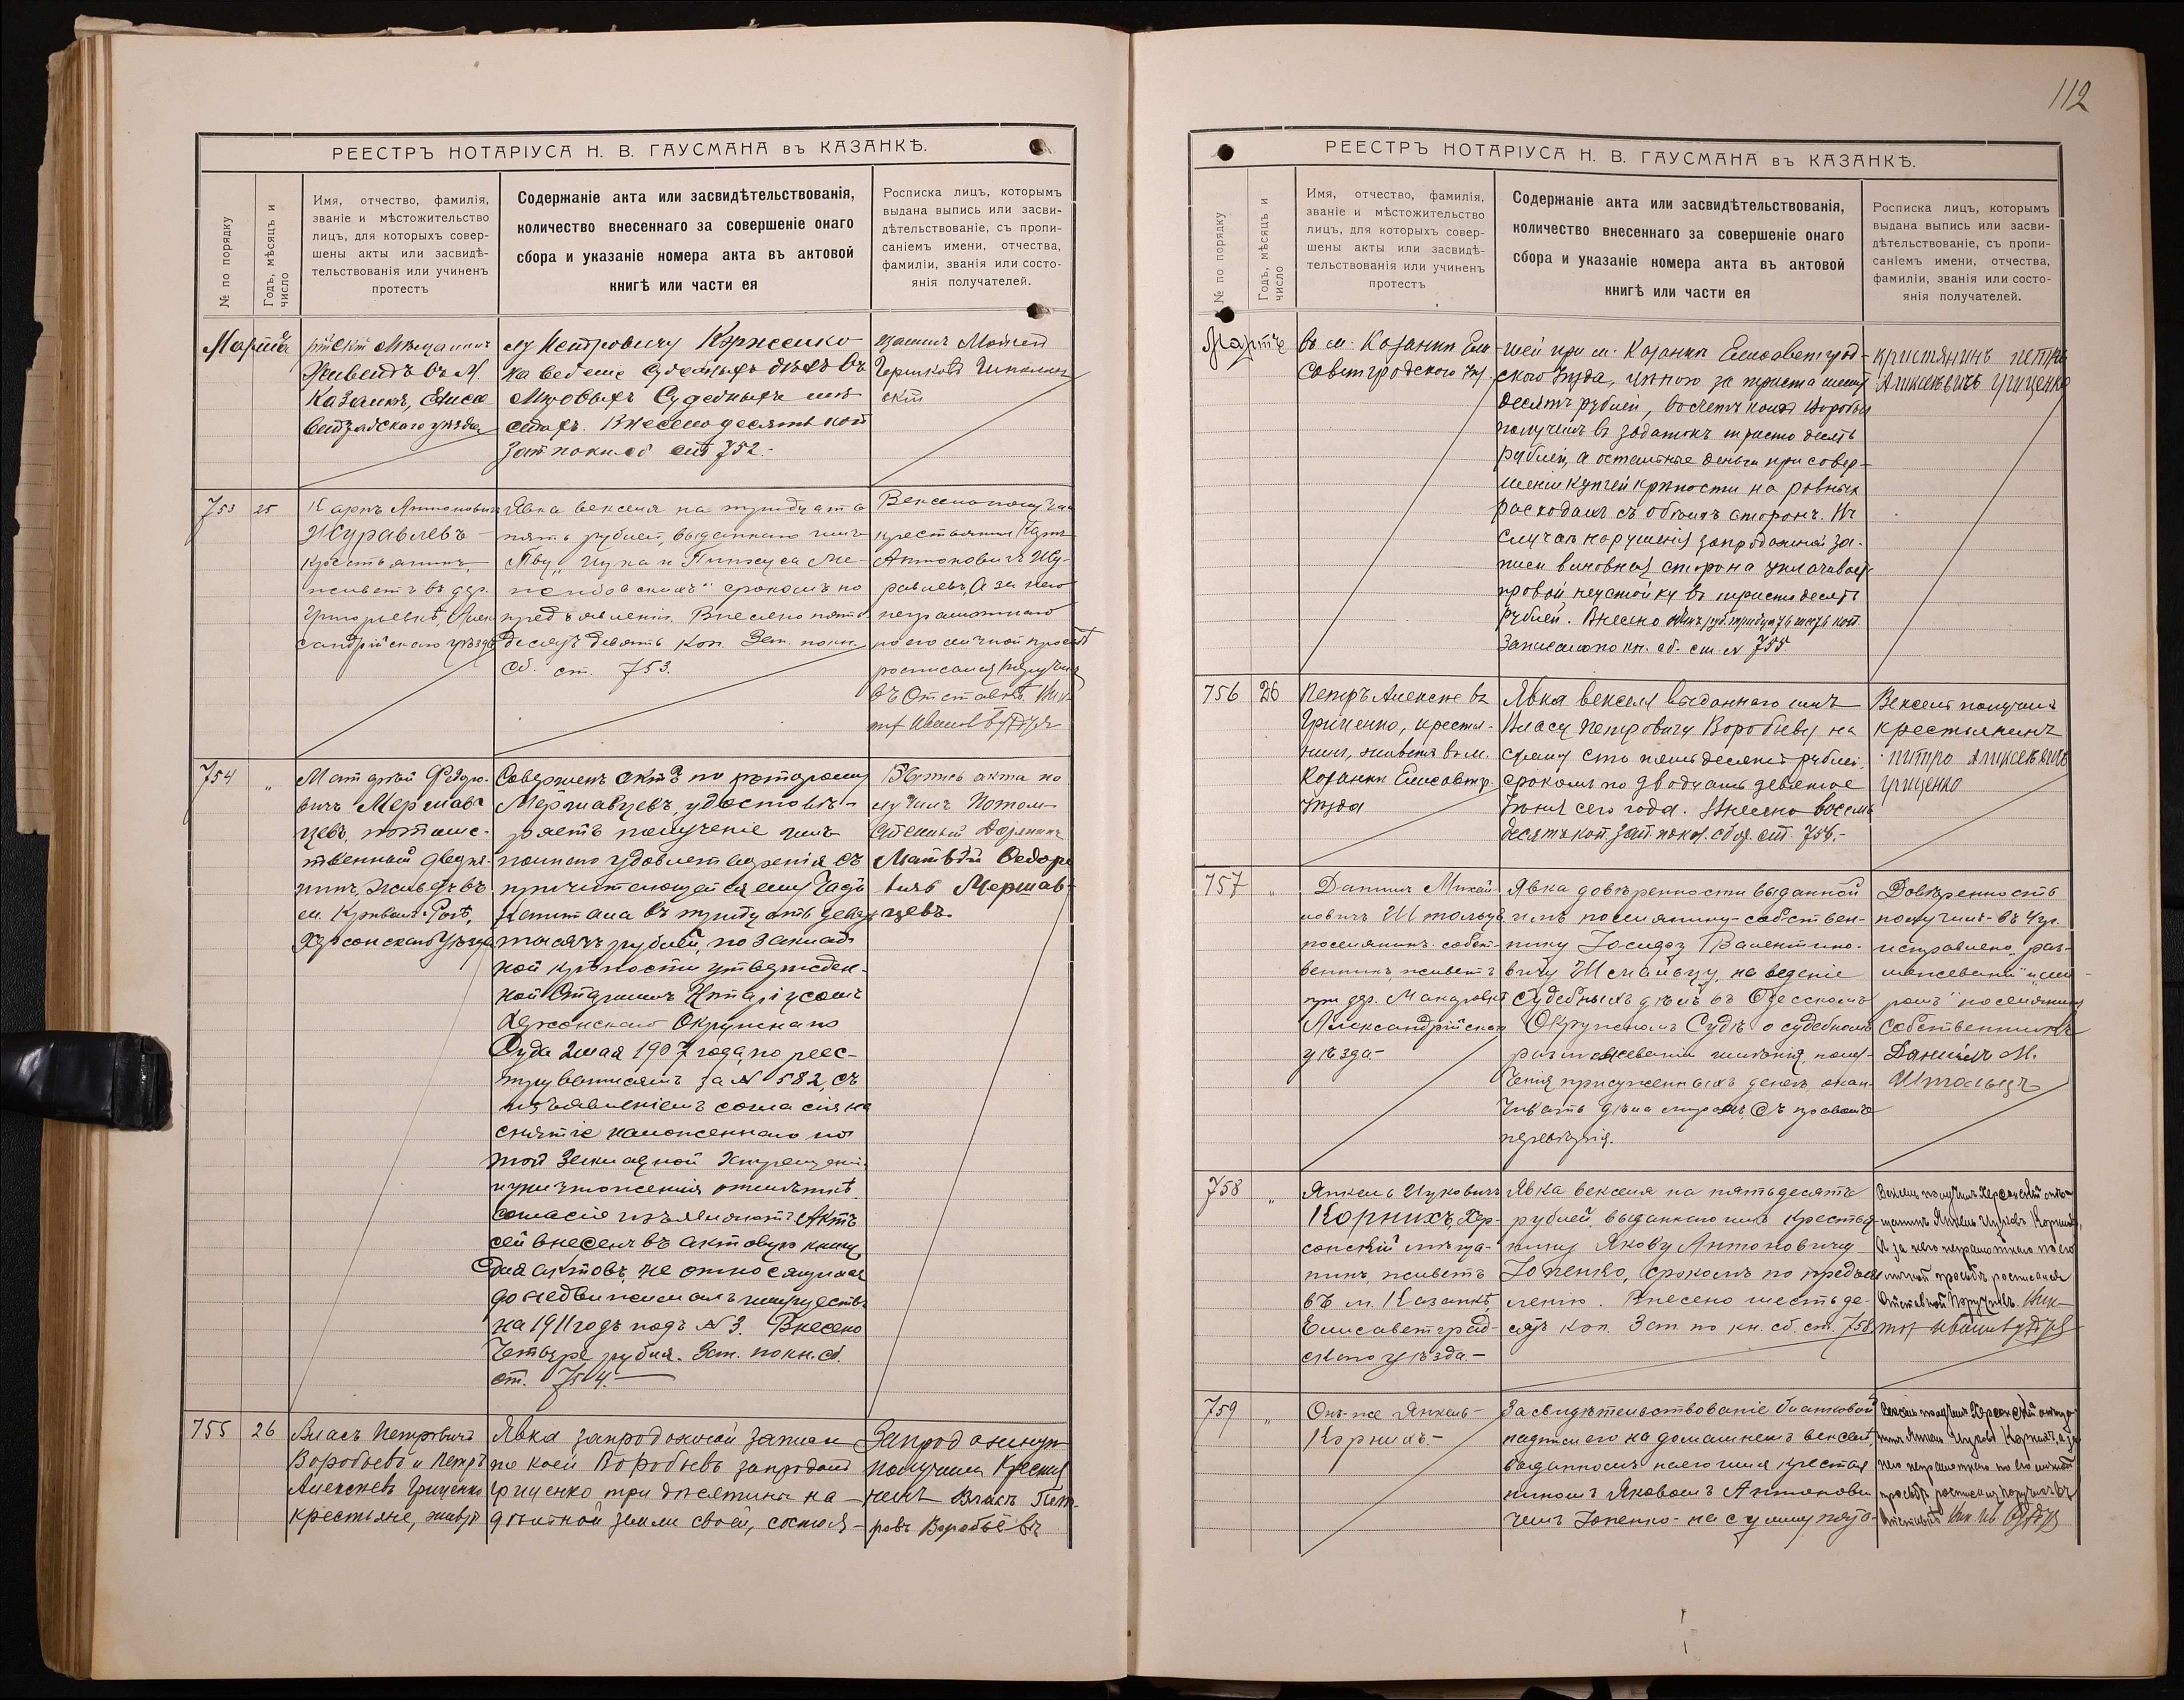 112
РЕЕСТРЪ НОТАРІУСА Н. В. ГАУСМАНА въ КАЗАНКѢ.
№ по порядку
Годъ, мѣсяцъ и
число
Имя, отчество, фамилія,
званіе и мѣстожительство
лицъ, для которыхъ совер-
шены акты или засвидѣ-
тельствованія или учиненъ
протестъ
Содержаніе акта или засвидѣтельствованія,
количество внесеннаго за совершеніе онаго
сбора и указаніе номера акта въ актовой
книгѣ или части ея
Росписка лицъ, которымъ
выдана выпись или засви-
дѣтельствованіе, съ пропи-
саніемъ имени, отчества,
фамиліи, званія или состо-
янія получателей.
Марта
Живетъ въ М.
Казанкѣ, Елиса
ветградскаго уѣзда
му Петровичу Корженко
на веденіе судебныхъ дѣлъ въ
Мировыхъ Судебныхъ
Внесено десять коп
Зап по кн сб ст 752.
753
25
Карпъ Антоновичъ
Журавлевъ
крестьянинъ,
живетъ въ дер.
Григорьевкѣ, Алек
сандрійскаго уѣзда
Явка векселя на тридцать
пять рублей, выданнаго имъ
Тву „Ицка и Пинхуса
срокомъ по
предъявленіи. Внесено пять
десятъ девять коп. Зап. по кн.
сб. ст. 753.
Вексель получилъ
крестьянинъ Карпъ
Антоновичъ Жу-
равлевъ, А за него
неграмотнаго
по его личной просьбѣ
росписался Поручикъ
въ Отставкѣ
754
„
Матвѣй Федоро-
вичъ Мершав-
цевъ, потомс-
твенный дворя-
нинъ, живетъ въ
м. Кривомъ-Рогѣ,
Херсонскаго Уѣзда
Совершенъ актъ по которому
Мершавцевъ удостовѣ-
ряетъ полученіе имъ
полнаго удовлетворенія съ
причитающейся ему
Капитала въ тридцать девять
тысячъ рублей, по заклад
ной крѣпости утвержден-
ной Старшимъ Нотаріусомъ
Херсонскаго Окружнаго
Суда 2 мая 1907 года, по реес-
тру за № 582, съ
изъявленіемъ согласія на
снятіе наложеннаго по
той Закладной Запрещенія
и уничтоженія отмѣткѣ.
согласія изъявляютъ. Актъ
сей внесенъ въ актовую книгу
для актовъ, не относящихся
до недвижимыхъ имуществъ
на 1911 годъ подъ № 3. Внесено
Четыре рубля. Зап. по кн. сб.
ст. 754.
Выпись акта по
лучилъ Потом
ственный Дворянинъ
Матвѣй Федоро
вичъ Мершав-
цевъ.
755
26
Власъ Петровичъ
Воробьевъ и Петръ
Алексѣевъ Гриценко
крестьяне, живут
Явка запродажной записи
по коей Воробьевъ запродалъ
Гриценко три десятины на-
дѣльной земли своей, состоя-
Запродажную
получилъ Крестья
нинъ Власъ Пет-
ровъ Воробьёвъ
РЕЕСТРЪ НОТАРІУСА Н. В. ГАУСМАНА въ КАЗАНКѢ.
№ по порядку
Годъ, мѣсяцъ и
число
Имя, отчество, фамилія,
званіе и мѣстожительство
лицъ, для которыхъ совер-
шены акты или засвидѣ-
тельствованія или учиненъ
протестъ
Содержаніе акта или засвидѣтельствованія,
количество внесеннаго за совершеніе онаго
сбора и указаніе номера акта въ актовой
книгѣ или части ея
Росписка лицъ, которымъ
выдана выпись или засви-
дѣтельствованіе, съ пропи-
саніемъ имени, отчества,
фамиліи, званія или состо-
янія получателей.
Мартъ
въ м. Казанки Ели
саветгродского Уѣз
щей при м. Казанки Елисаветград-
скаго Уѣзда, цѣною за триста шесть
десятъ рублей, въ счетъ коихъ Воробьев
получилъ въ задатокъ триста десять
рублей, а остальные деньги при совер-
шеніи купчей крѣпости на равныхъ
расходахъ съ обѣихъ сторонъ. Въ
случаѣ нарушенія запродажной за-
писи виновная сторона уплачивает
правой неустойку въ триста десять
рублей. Внесено одинъ руб. тридцать шесть коп
Записано по кн. сб. ст. № 755
кристянинъ петръ
Аликсѣвичъ грищенко
756
26
Петръ Алексѣевъ
Гриценко, крестья-
нинъ, живетъ въ м.
Казанки Елисаветгр.
Уѣзда
Явка векселя выданнаго имъ
Власу Петровичу Воробьеву на
сумму сто пятьдесятъ рублей,
срокомъ по двадцать девятое
Іюня сего года. Внесено восемь
десятъ коп. Зап. по кн. сбор. ст. 756.-
Вексель получилъ
крестьянинъ
питро Аликсѣвичъ
грищенко
757
„
Даніилъ Михай-
ловичъ Штольцъ
поселянинъ-собст-
венникъ, живетъ
при дер. Макаровкѣ
Александрійскаго
уѣзда-
Явка довѣренности выданной
имъ поселянину-собствен-
нику Іосифу Валентино-
вичу Шмальцу, на веденіе
судебныхъ дѣлъ въ Одесскомъ
Окружномъ Судѣ о судебномъ
размежеваніи имѣнія, полу-
ченія присужденныхъ денегъ, окан-
чивать дѣла миромъ, съ правомъ
передовѣрія.
Довѣренность
получилъ- въ 4 гр.
исправлено „раз-
межеваніи" и „ми-
ромъ" поселянинъ
собственникъ
Даніилъ М.
Штольцъ
758
„
Янкель Ицковичъ
Корнихъ, Хер-
сонскій мѣща-
нинъ, живетъ
въ м. Казанкѣ,
Елисаветград-
скаго уѣзда.-
Явка векселя на пятьдесятъ
рублей, выданнаго имъ Крестья
нину Якову Антоновичу
Іопенко, срокомъ по предъяв
ленію. Внесено шестьде-
сятъ коп. Зап по кн. сб. ст. 758
Вексель получилъ Херсонскій мѣ-
щанинъ Янкель Ицковъ Корнихъ,
А за него неграмотнаго по его
личной просьбѣ росписался
Отставной Поручикъ
759
„
Онъ-же Янкель
Корнихъ.-
Засвидѣтельствованіе бланковой
надписи его на домашнемъ векселѣ,
выданномъ на его имя крестья
ниномъ Яковомъ Антонови
чемъ Іопенко- на сумму пять-
Вексель получилъ Херсонскій мѣща-
нинъ Янкель Ицковъ Корнихъ, а за
него неграмотнаго по его личной
просьбѣ росписался Поручикъ въ